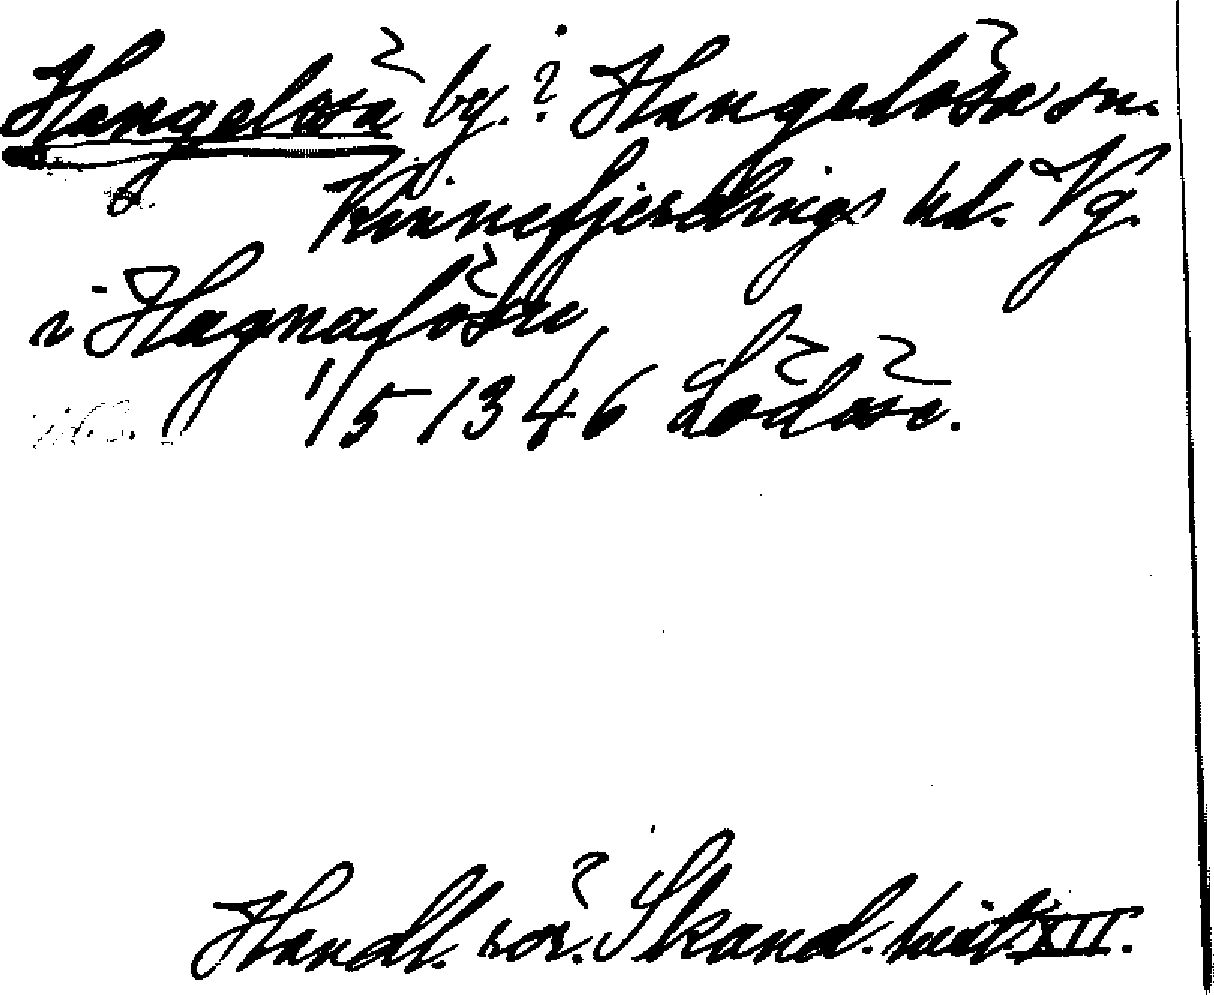 Hangelösa by.? Hangelösa sn.
Kinnefjerdings hd. Vg.
i Hagnaløsæ
1/5 1346 Lödöse.
Handl. rör. Skand. hist. XII.